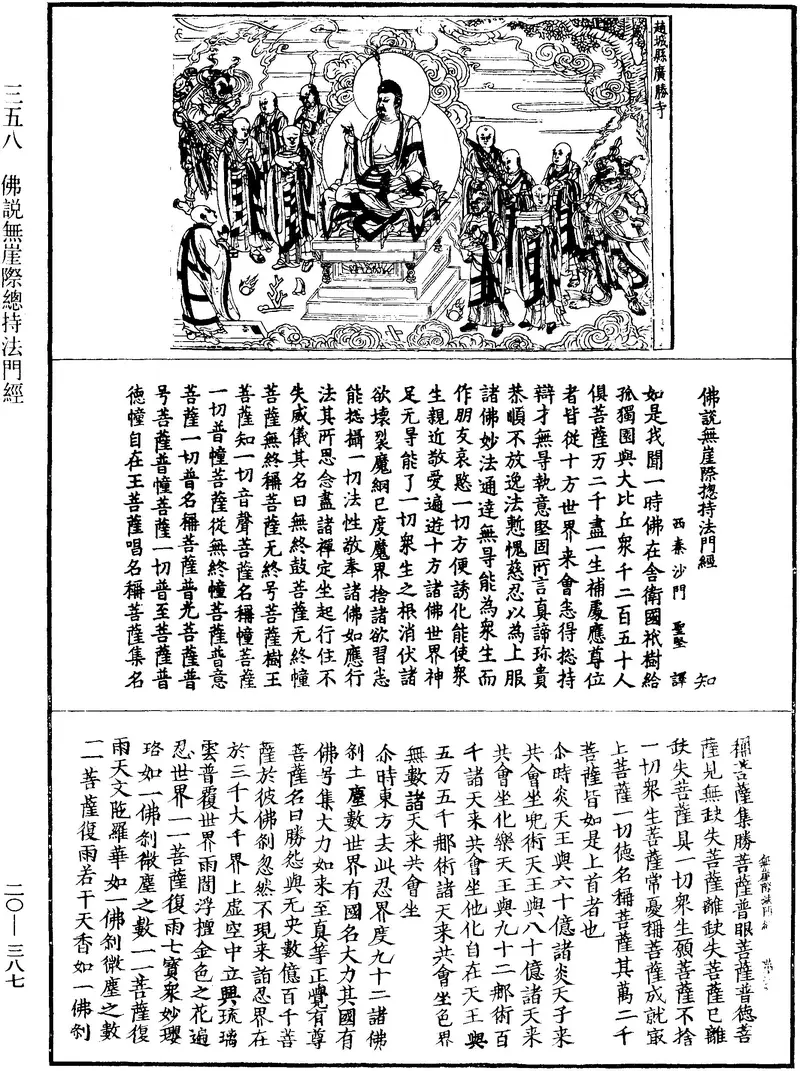 三五八　佛説無崖際總持法門經
二〇—三八七
趙城縣廣勝寺
佛說無崖際揔持法門經　知
西秦沙門　聖堅　譯
如是我聞一時佛在舍衛國祇樹給
孤獨園與大比丘衆千二百五十人
俱菩薩万二千盡一生補處應尊位
者皆從十方世界来會志得揔持
辯才無导執意堅固所言真諦珎貴
恭順不放逸法慙愧慈忍以為上服
諸佛妙法通達無导能為衆生而
作朋友哀愍一切方便誘化能使衆
生親近敬愛遍遊十方諸佛世界神
足无导能了一切衆生之根消伏諸
欲壞裂魔網已度魔界捨諸欲習志
能揔攝一切法性敬奉諸佛如應行
法其所思念盡諸禪定坐起行住不
失威儀其名曰無終鼓菩薩无終幢
菩薩無終稱菩薩无終号菩薩樹王
菩薩知一切音聲菩薩名稱幢菩薩
一切普幢菩薩從無終幢菩薩普意
菩薩一切普名稱菩薩普光菩薩普
号菩薩普幢菩薩一切普至菩薩普
德幢自在王菩薩唱名稱菩薩集名
稱菩薩集勝菩薩普眼菩薩普德菩
薩見無缺失菩薩離缺失菩薩已離
缺失菩薩具一切衆生願菩薩不捨
一切衆生菩薩常憂稱菩薩成就㝡
上菩薩一切德名稱菩薩其萬二千
菩薩皆如是上首者也
尒時炎天王與六十億諸炎天子来
共會坐兜術天王與八十億諸天来
共會坐化樂天王與九十二那術百
千諸天来共會坐他化自在天王與
五万五千那術諸天来共會坐色界
無數諸天来共會坐
尒時東方去此忍界度九十二諸佛
刹土塵數世界有國名大力其國有
佛号集大力如来至真等正覺有尊
菩薩名曰勝怨與无央數億百千菩
薩於彼佛刹忽然不現来詣忍界在
於三千大千界上虛空中立興琉璃
雲普覆世界雨閻浮檀金色之花遍
忍世界一一菩薩復雨七寶衆妙瓔
珞如一佛刹微塵之數一一菩薩復
雨天文陁羅華如一佛刹微塵之數
一一菩薩復雨若干天香如一佛刹